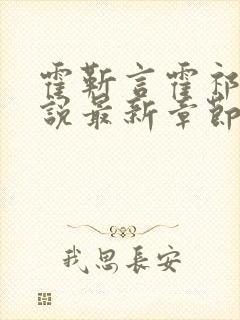 霍靳言霍祁
说最新章节
我思長安